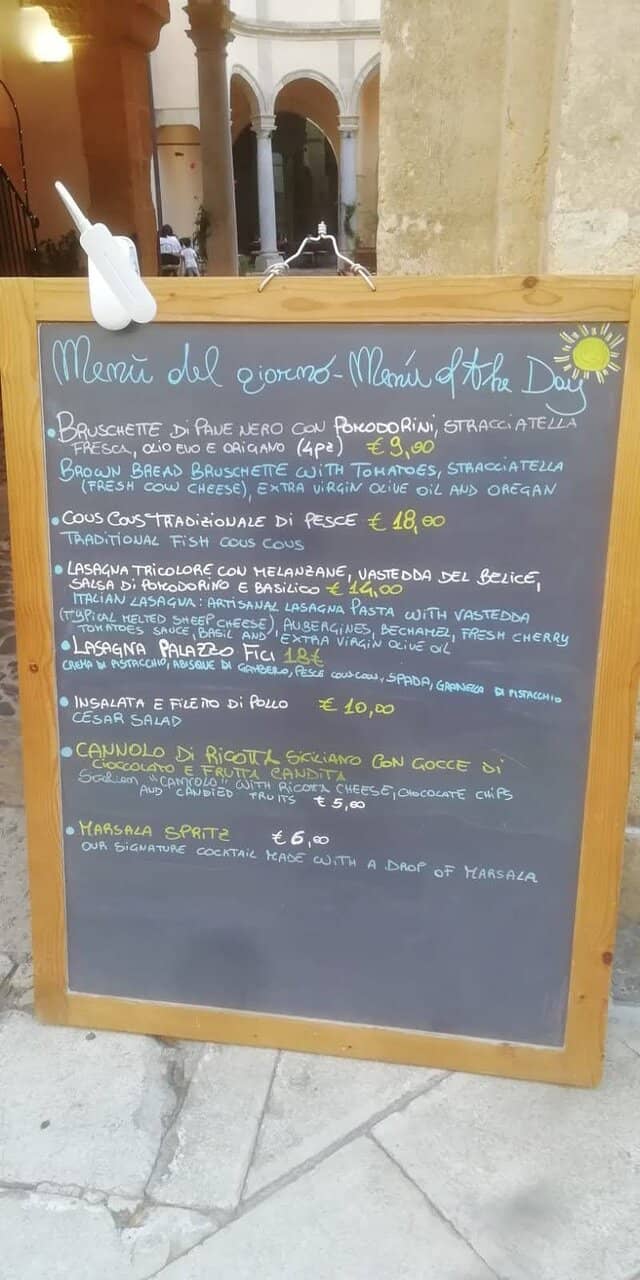 Menù del giorno - Menú of the Day
• BRUSCHETTE DI PANE NERO CON POMODORINI, STRACCIATELLA
FRESCA, OLIO EVO E ORIGANO (4pz) € 9,00
BROWN BREAD BRUSCHETTE WITH TOMATOES, STRACCIATELLA
(FRESH COW CHEESE), EXTRA VIRGIN OLIVE OIL AND OREGAN
• COUS COUS TRADIZIONALE DI PESCE € 18,00
TRADITIONAL FISH COUS COUS
• LASAGNA TRICOLORE CON MELANZANE, VASTEDDA DEL BELICE,
SALSA DI POMODORINO E BASILICO € 14,00
ITALIAN LASAGNA: ARTISANAL LASAGNA PASTA WITH VASTEDDA
(TYPICAL MELTED SHEEP CHEESE), AUBERGINES, BECHAMEL, FRESH CHERRY
TOMATOES SAUCE, BASIL AND EXTRA VIRGIN OLIVE OIL
• LASAGNA PALAZZO FICI 18€
CREMA DI PISTACCHIO, ABISQUE DI GAMBERO, PESCE SPADA, GRANELLA DI PISTACCHIO
• INSALATA E FILETTO DI POLLO € 10,00
CESAR SALAD
• CANNOLO DI RICOTTA SICILIANO CON GOCCE DI
CIOCCOLATO E FRUTTA CANDITA
Sicilian "CANNOLO" WITH RICOTTA CHEESE, CHOCOLATE CHIPS
AND CANDIED FRUITS € 5,00
• MARSALA SPRITZ € 6,00
OUR SIGNATURE COCKTAIL MADE WITH A DROP OF MARSALA